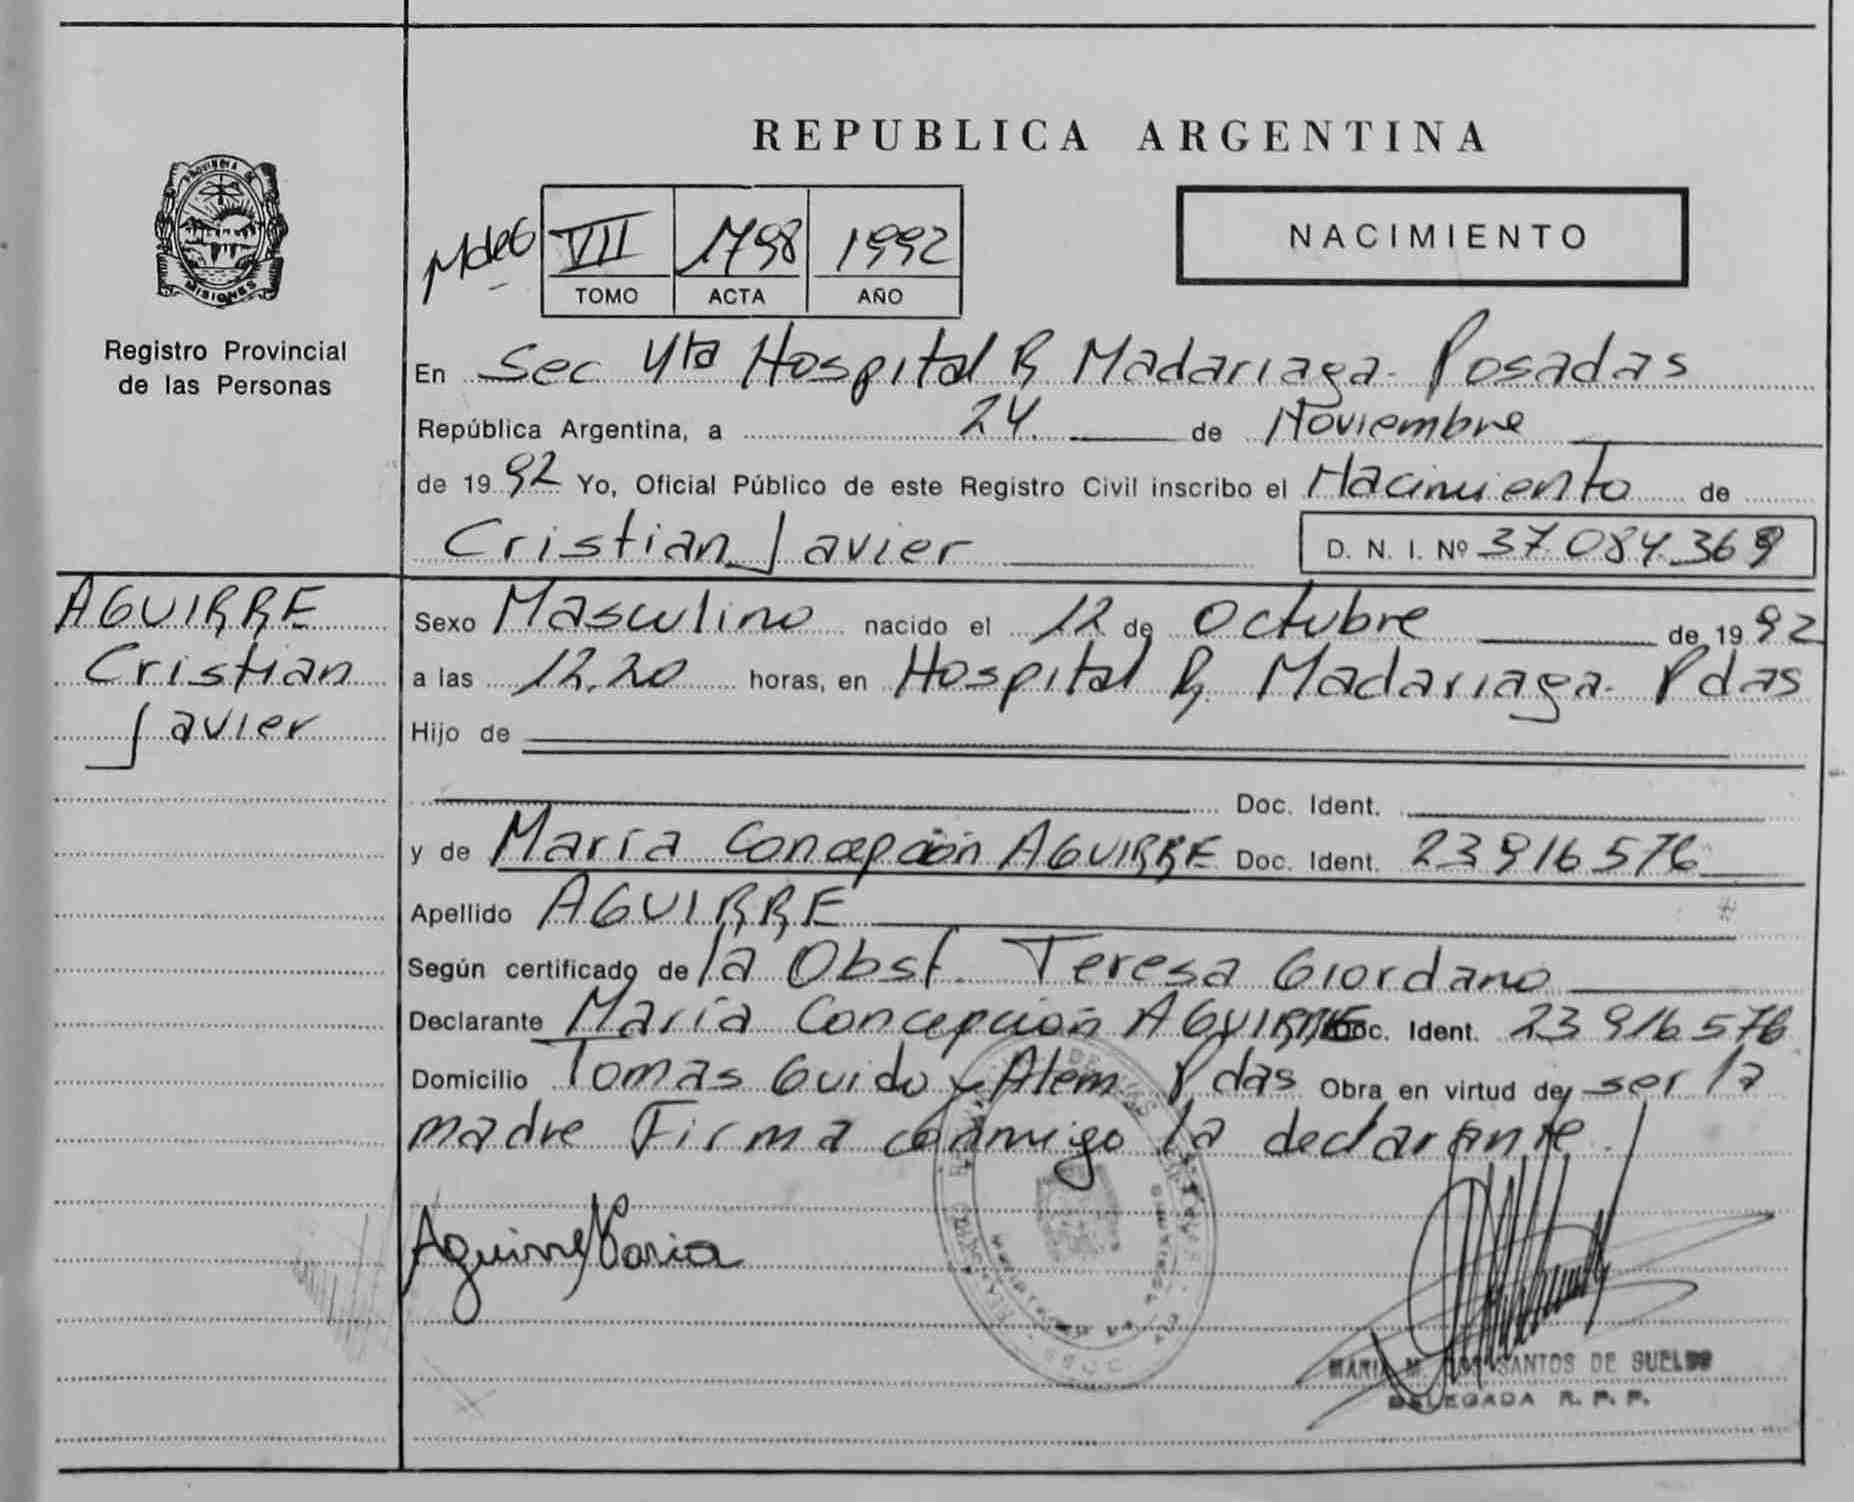 REPUBLICA ARGENTINA
PROVINCIA DE
MISIONES
Registro Provincial
de las Personas
VII 1798 1992
TOMO ACTA AÑO
NACIMIENTO
En Sec 4ta Hospital R Madariaga - Posadas
República Argentina, a 24 de Noviembre
de 1992 Yo, Oficial Público de este Registro Civil inscribo el Nacimiento de
Cristian Javier D. N. I. Nº 37.084.369
AGUIRRE
Cristian
Javier
Sexo Masculino nacido el 12 de Octubre de 1992
a las 12.20 horas, en Hospital R. Madariaga - Pdas
Hijo de
Doc. Ident.
y de María Concepción AGUIRRE Doc. Ident. 23.916.576
Apellido AGUIRRE
Según certificado de la Obst. Teresa Giordano
Declarante María Concepción AGUIRRE Doc. Ident. 23.916.576
Domicilio Tomas Guido y Alem Pdas Obra en virtud de ser la
madre Firma conmigo la declarante.
Aguirre Maria
MARIA M. DOS SANTOS DE SUELDO
DELEGADA R. P. P.